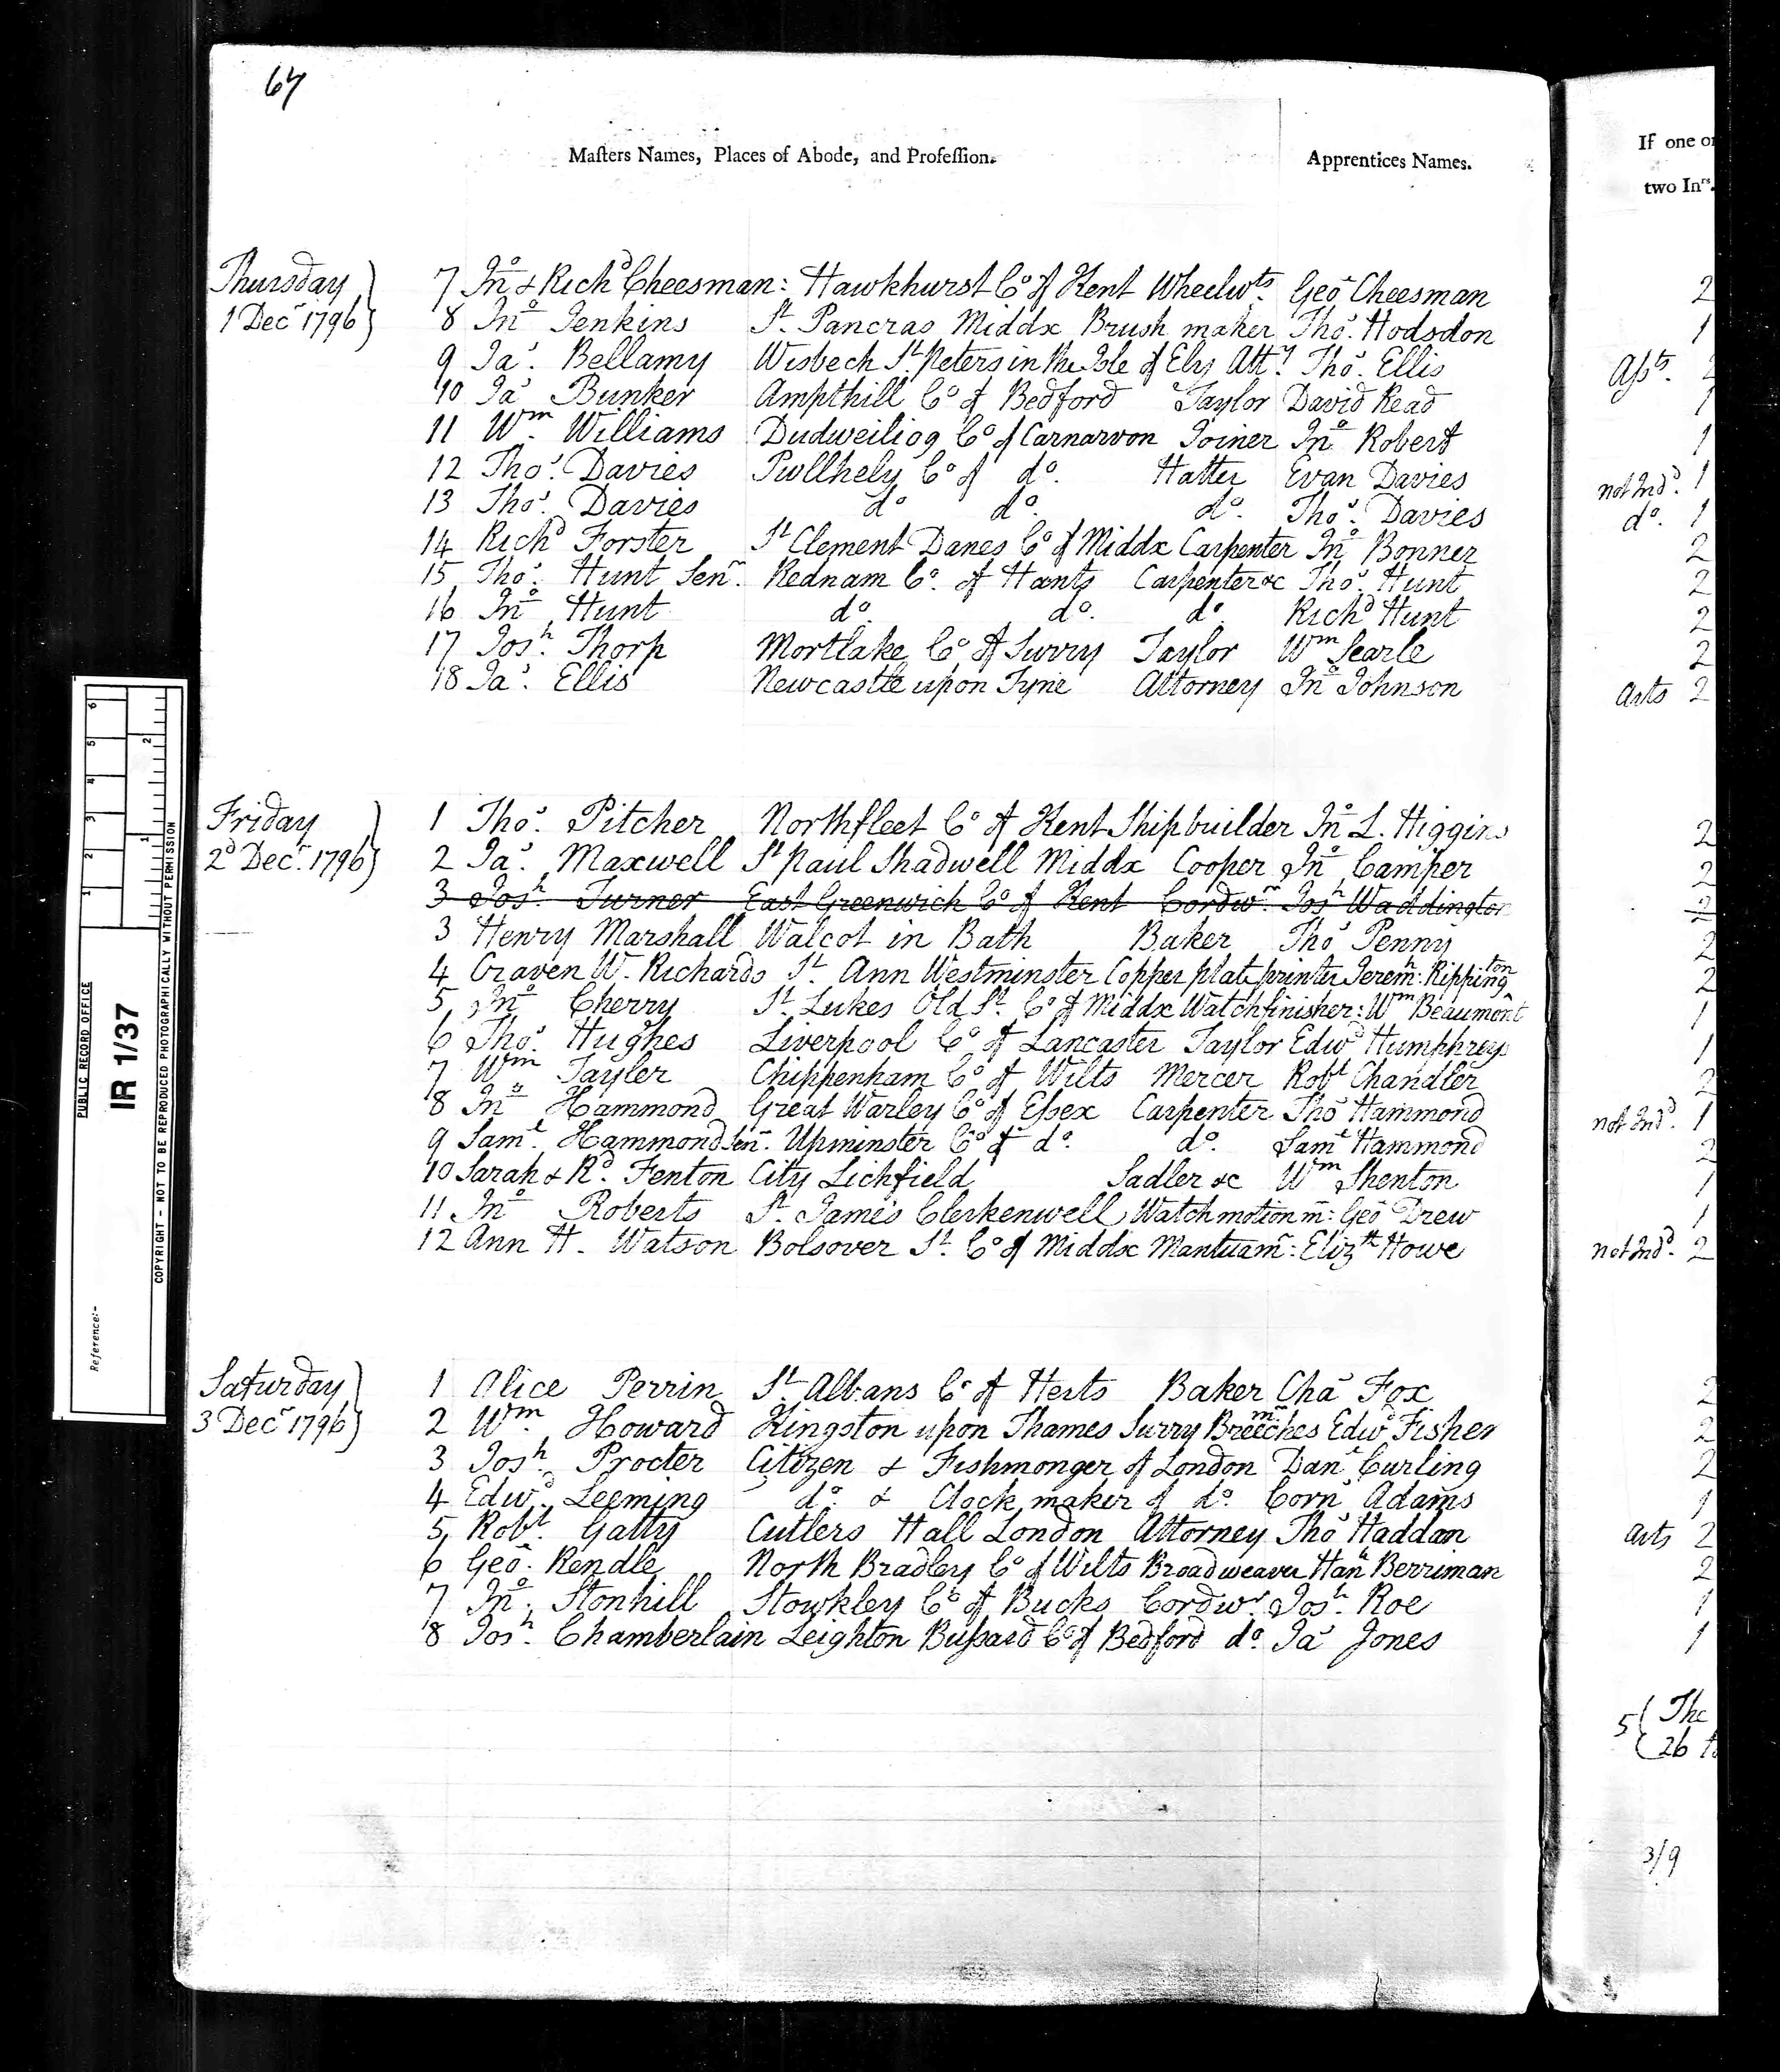 67
Masters Names, Places of Abode, and Profession.
Apprentices Names.
If one or
two Inrs.
Thursday
1 Decr 1796
7 Jno & Richd Cheesman: Hawkhurst Co of Kent Wheelwts. Geo Cheesman 2
8 Jno Jenkins St. Pancras Middx Brush maker Thos. Hodsdon 1
9 Jas. Bellamy Wisbech St. Peters in the Isle of Ely Atty. Thos. Ellis Assts.
10 Jas Bunker Ampthill Co of Bedford Taylor David Read 1
11 Wm. Williams Dudweiliog Co of Carnarvon Joiner Jno Robert 1
12 Thos. Davies Pwllhely Co of do. Hatter Evan Davies not Ind. 1
13 Thos. Davies do do. do. Thos. Davies do. 1
14 Richd Forster St Clement Danes Co of Middx Carpenter Jno Bonner 2
15 Thos. Hunt Senr. Rednam Co. of Hants Carpenter &c Thos. Hunt 2
16 Jno Hunt do. do. do. Richd Hunt 2
17 Josh. Thorp Mortlake Co of Surry Taylor Wm Searle 2
18 Jas. Ellis Newcastle upon Tyne Attorney Jno Johnson Arts 2
Friday
2d Decr. 1796
1 Thos. Pitcher Northfleet Co of Kent Shipbuilder Jno L. Higgins 2
2 Jas. Maxwell St Paul Shadwell Middx Cooper Jno Camper 2
3 Josh. Turner East Greenwich Co of Kent Cordwr. Josh Waddington 2
3 Henry Marshall Walcot in Bath Baker Thos Penny 2
4 Craven W. Richards St. Ann Westminster Copper plate printer Jeremh: Rippington 2
5 Jno Cherry St. Lukes Old St. Co of Middx Watchfinisher: Wm Beaumont 1
6 Thos. Hughes Liverpool Co of Lancaster Taylor Edwd Humphreys 1
7 Wm Tayler Chippenham Co of Wilts Mercer Robt Chandler 2
8 Jno Hammond Great Warley Co of Essex Carpenter Thos Hammond not Ind. 1
9 Saml. Hammond Senr. Upminster Co of do. do. Saml Hammond 2
10 Sarah & Rd. Fenton City Lichfield Sadler &c Wm Shenton 1
11 Jno Roberts St. James Clerkenwell Watch motion mr: Geo Drew 1
12 Ann H. Watson Bolsover St. Co of Middx Mantuamr: Elizth Howe not Ind. 2
Saturday
3 Decr 1796
1 Alice Perrin St. Albans Co of Herts Baker Chas Fox 2
2 Wm. Howard Kingston upon Thames Surry Breeches mr Edwd Fisher 2
3 Josh. Procter Citizen & Fishmonger of London Danl Curling 2
4 Edwd. Leeming do. & Clock maker of do. Corns Adams 1
5 Robt. Gatty Cutlers Hall London Attorney Thos Haddan Arts 2
6 Geo. Rendle North Bradley Co of Wilts Broadweaver Han Berriman 2
7 Jno. Stonhill Stowkley Co of Bucks Cordwr. Josh. Roe 1
8 Josh. Chamberlain Leighton Bussard Co of Bedford do. Jas Jones 1
5 { The
26
3/9
PUBLIC RECORD OFFICE
IR 1/37
Reference:-
COPYRIGHT - NOT TO BE REPRODUCED PHOTOGRAPHICALLY WITHOUT PERMISSION
1 2 3 4 5 6
1 2